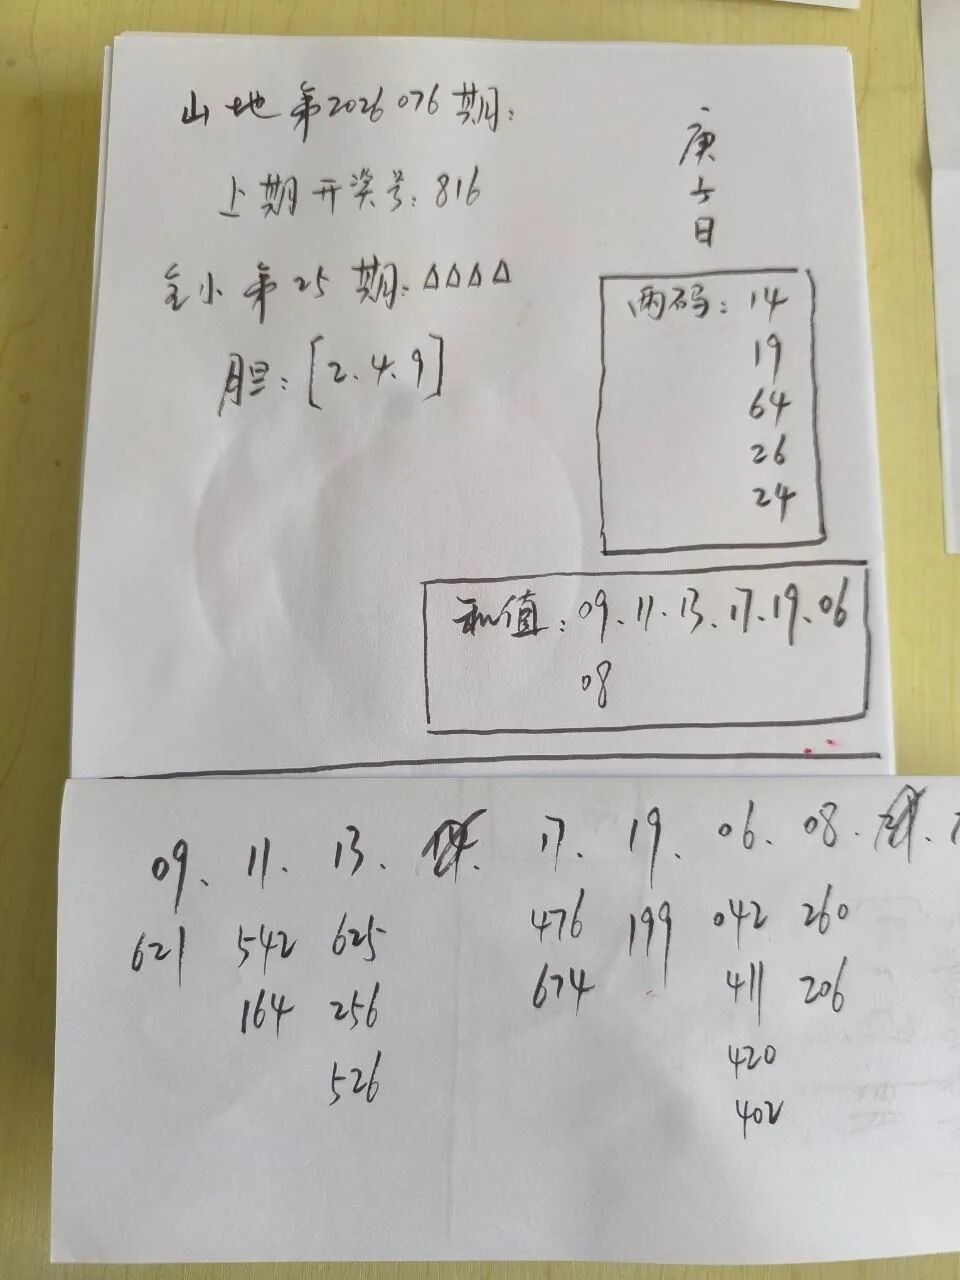 山地第2026076期:
上期开奖号:816
全小第25期:△△△△
胆:[2.4.9]
庚
日
两码:14
19
64
26
24
和值:09.11.13.17.19.06
08
09. 11. 13. 17. 19. 06. 08.
621 542 625 476 199 042 260
164 256 674 411 206
526 420
402